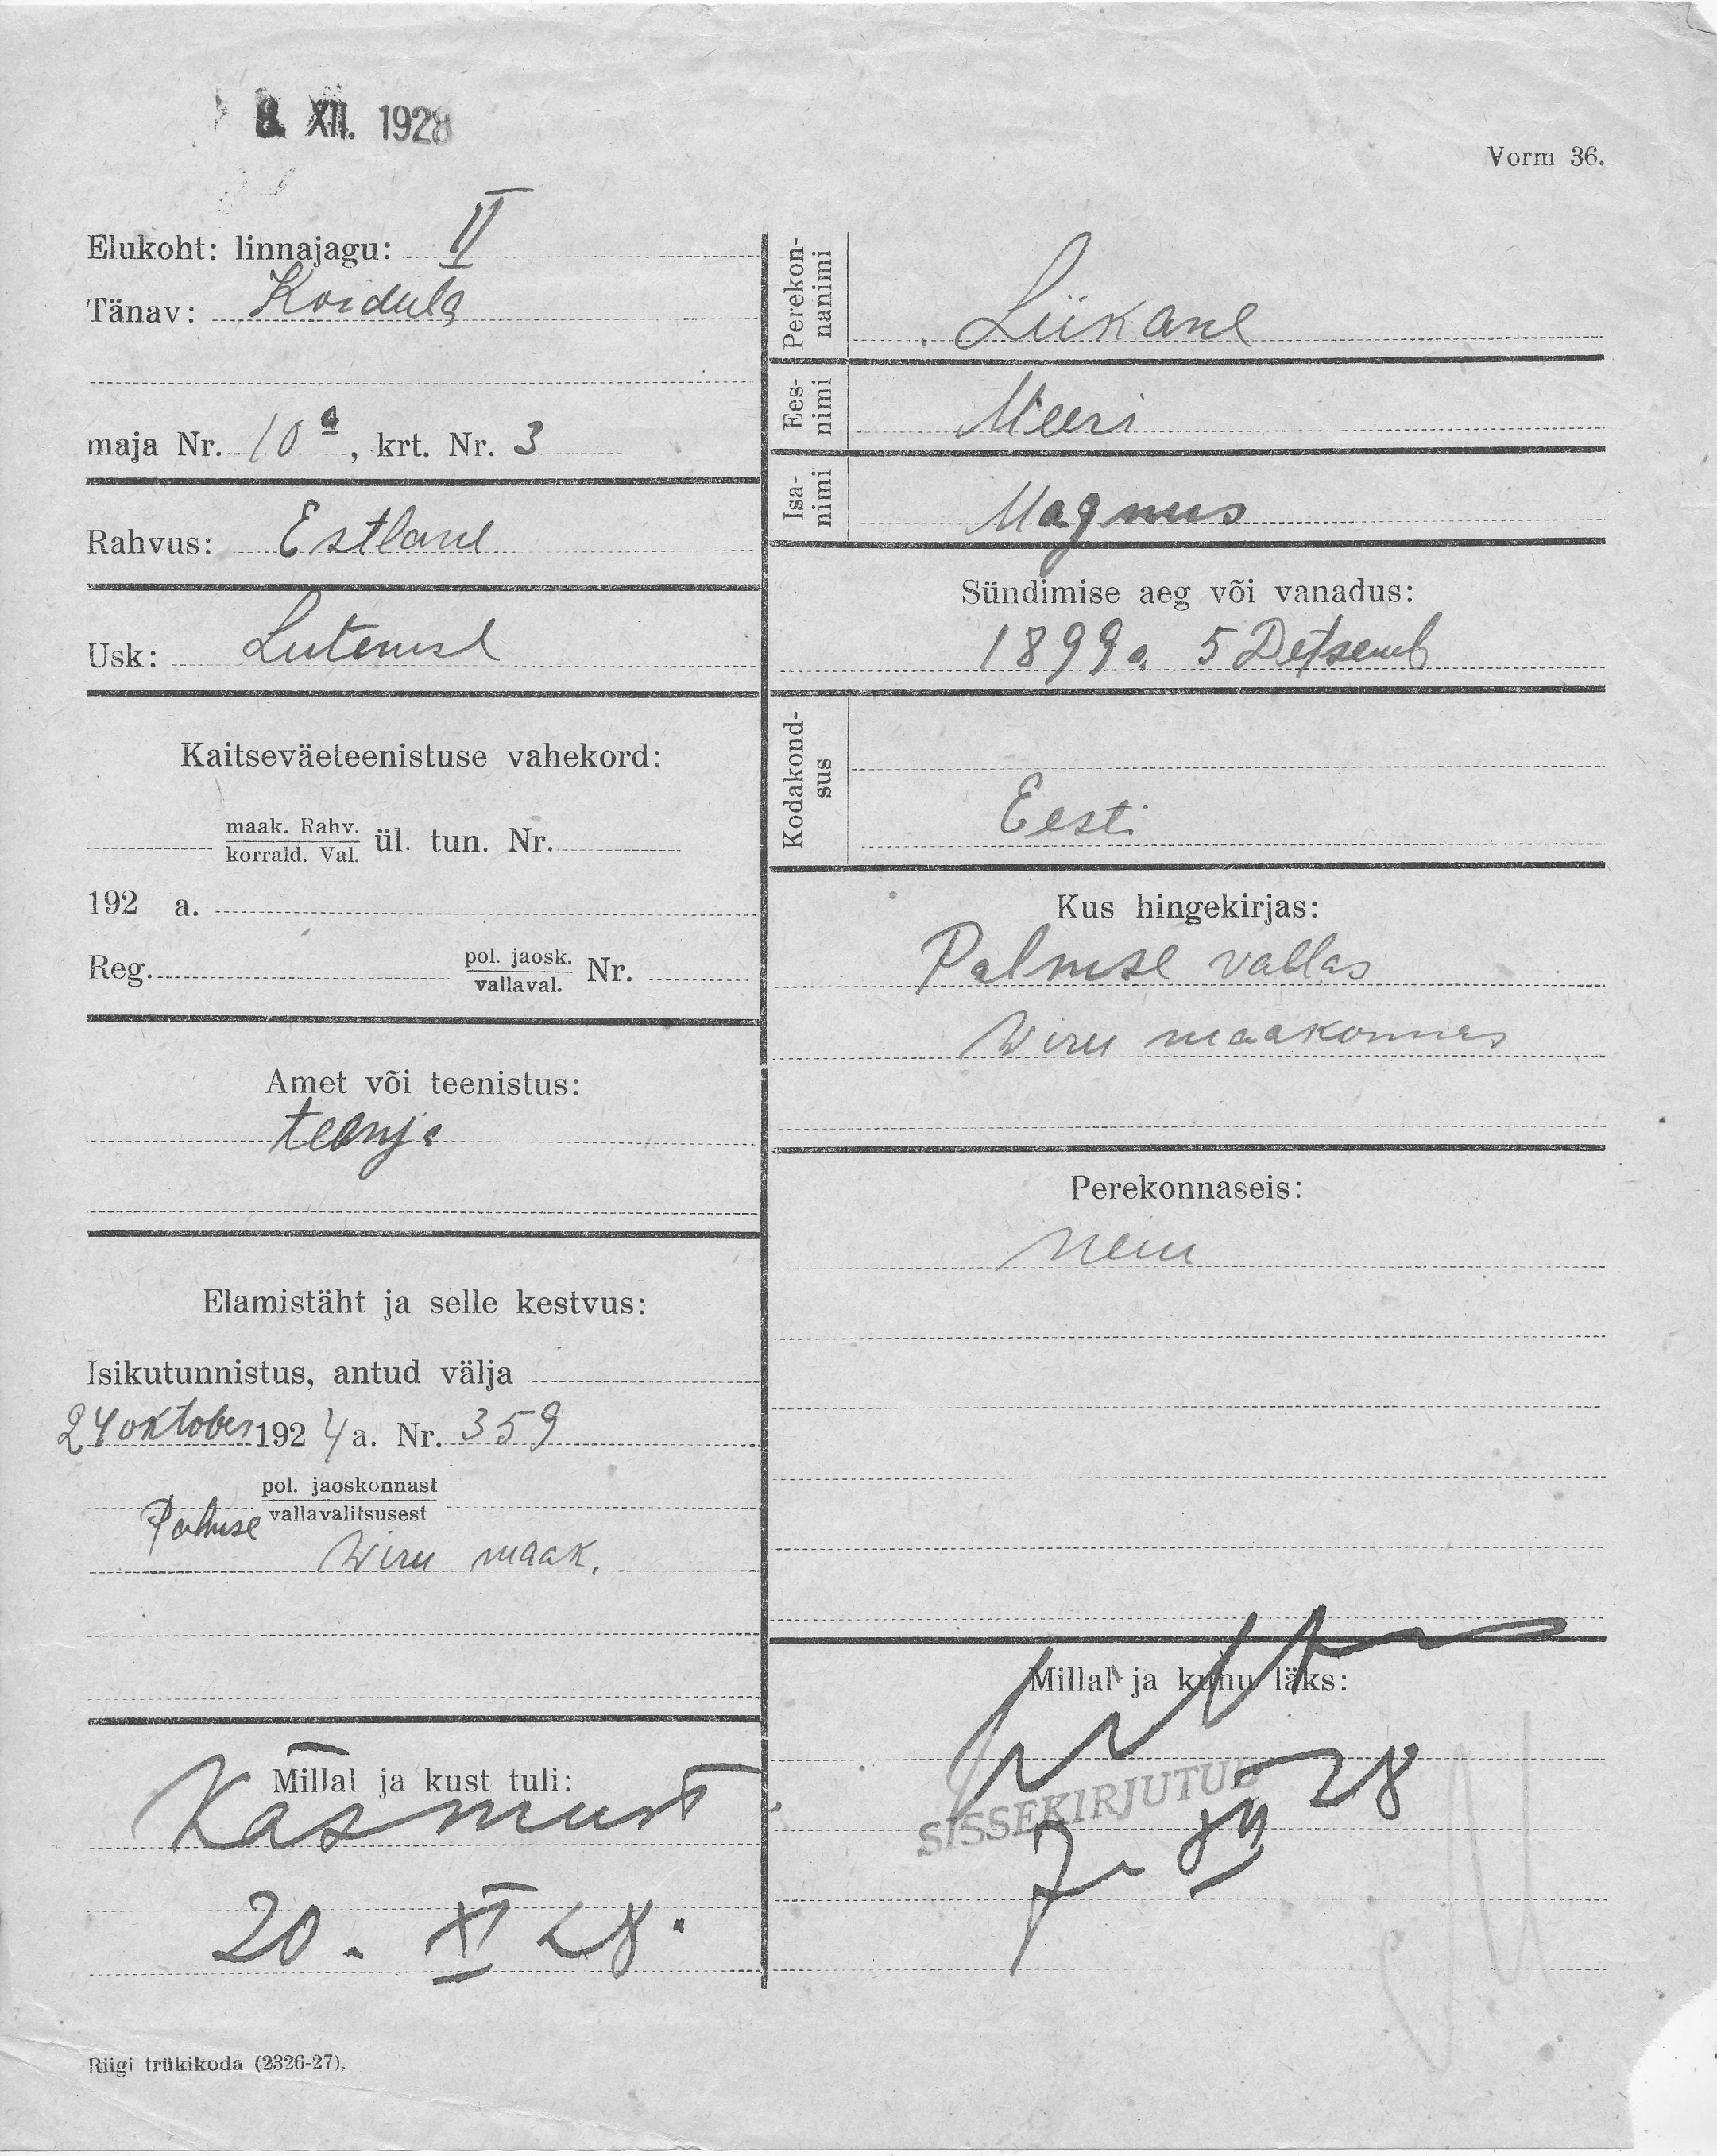 8. XII. 1928
Vorm 36.
Elukoht: linnajagu: II
Tänav: Koidula
maja Nr. 10a, krt. Nr. 3
Rahvus: Estlane
Usk: Luteruse
Kaitseväeteenistuse vahekord:
maak. Rahv.
korrald. Val. ül. tun. Nr.
192 a.
Reg. pol. jaosk.
vallaval. Nr.
Amet või teenistus:
teenija
Elamistäht ja selle kestvus:
Isikutunnistus, antud välja
24 oktober 1924 a. Nr. 359
pol. jaoskonnast
Palmse vallavalitsusest
Wiru maak.
Millal ja kust tuli:
Käsmust
20. XI 28.
Riigi trükikoda (2326-27).
Perekon-
nanimi
Liikane
Ees-
nimi
Meeri
Isa-
nimi
Magnus
Sündimise aeg või vanadus:
1899 a. 5 Detsemb
Kodakond-
sus
Eesti
Kus hingekirjas:
Palmse vallas
Wiru maakonnas
Perekonnaseis:
neiu
Millal ja kuhu läks:
SISSEKIRJUTUD
7. XII 28